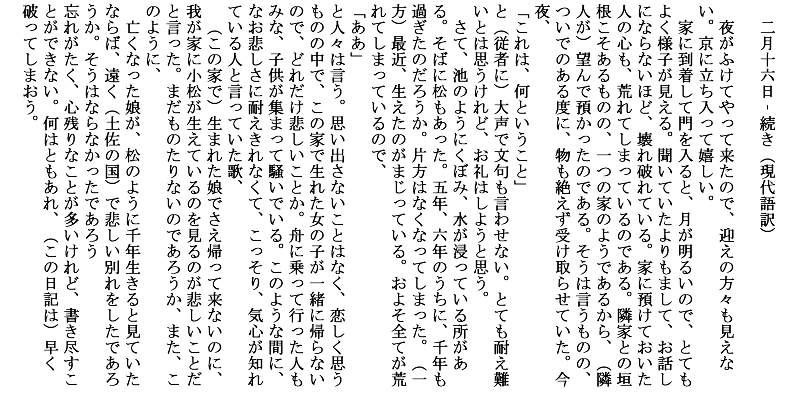 二月十六日 - 続き（現代語訳）
夜がふけてやって来たので、迎えの方々も見えな
い。京に立ち入って嬉しい。
家に到着して門を入ると、月が明るいので、とても
よく様子が見える。聞いていたよりもまして、お話し
にならないほど、壊れ破れている。家に預けておいた
人の心も、荒れてしまっているのである。隣家との垣
根こそあるものの、一つの家のようであるから、（隣
人が）望んで預かったのである。そうは言うものの、
ついでのある度に、物も絶えず受け取らせていた。今
夜、
「これは、何ということ」
と（従者に）大声で文句も言わせない。とても耐え難
いとは思うけれど、お礼はしようと思う。
さて、池のようにくぼみ、水が浸っている所があ
る。そばに松もあった。五年、六年のうちに、千年も
過ぎたのだろうか。片方はなくなってしまった。（一
方）最近、生えたのがまじっている。およそ全てが荒
れてしまっているので、
「ああ」
と人々は言う。思い出さないことはなく、恋しく思う
ものの中で、この家で生れた女の子が一緒に帰らない
ので、どれだけ悲しいことか。舟に乗って行った人も
みな、子供が集まって騒いでいる。このような間に、
なお悲しさに耐えきれなくて、こっそり、気心が知れ
ている人と言っていた歌、
（この家で）生まれた娘でさえ帰って来ないのに、
我が家に小松が生えているのを見るのが悲しいことだ
と言った。まだものたりないのであろうか、また、こ
のように、
亡くなった娘が、松のように千年生きると見ていた
ならば、遠く（土佐の国）で悲しい別れをしたであろ
うか。そうはならなかったであろう
忘れがたく、心残りなことが多いけれど、書き尽すこ
とができない。何はともあれ、（この日記は）早く
破ってしまおう。